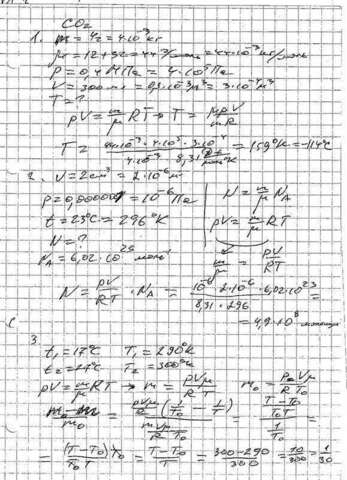 CO₂
1. m = 4г = 4·10⁻³кг
μ = 12+32 = 44 г/моль = 44·10⁻³ кг/моль
P = 0,4 МПа = 4·10⁵Па
V = 300 мл = 0,3·10⁻³м³ = 3·10⁻⁴м³
T = ?
pV = m/μ RT → T = μpV/mR
T = 44·10⁻³·4·10⁵·3·10⁻⁴ / 4·10⁻³·8,31 = 159°K = -114°C
2. V = 2см³ = 2·10⁻⁶м³
p = 0,000001 = 10⁻⁶Па
t = 23°C = 296°K
N = ?
N_A = 6,02·10²³ моль⁻¹
N = m/μ N_A
pV = m/μ RT
m/μ = pV/RT
N = pV/RT · N_A = 10⁻⁶·2·10⁻⁶·6,02·10²³ / 8,31·296 =
= 4,9·10⁸
3.
t₁ = 17°C T₁ = 290°K
t₂ = 27°C T₂ = 300°K
pV = m/μ RT → m = pVμ/RT m₀ = P₀Vμ/RT₀
m₀-m/m₀ = pVμ/R (1/T₀ - 1/T) / = T-T₀/T₀T / 1/T₀
= (T-T₀)T₀/T₀T = T-T₀/T = 300-290/300 = 10/300 = 1/30